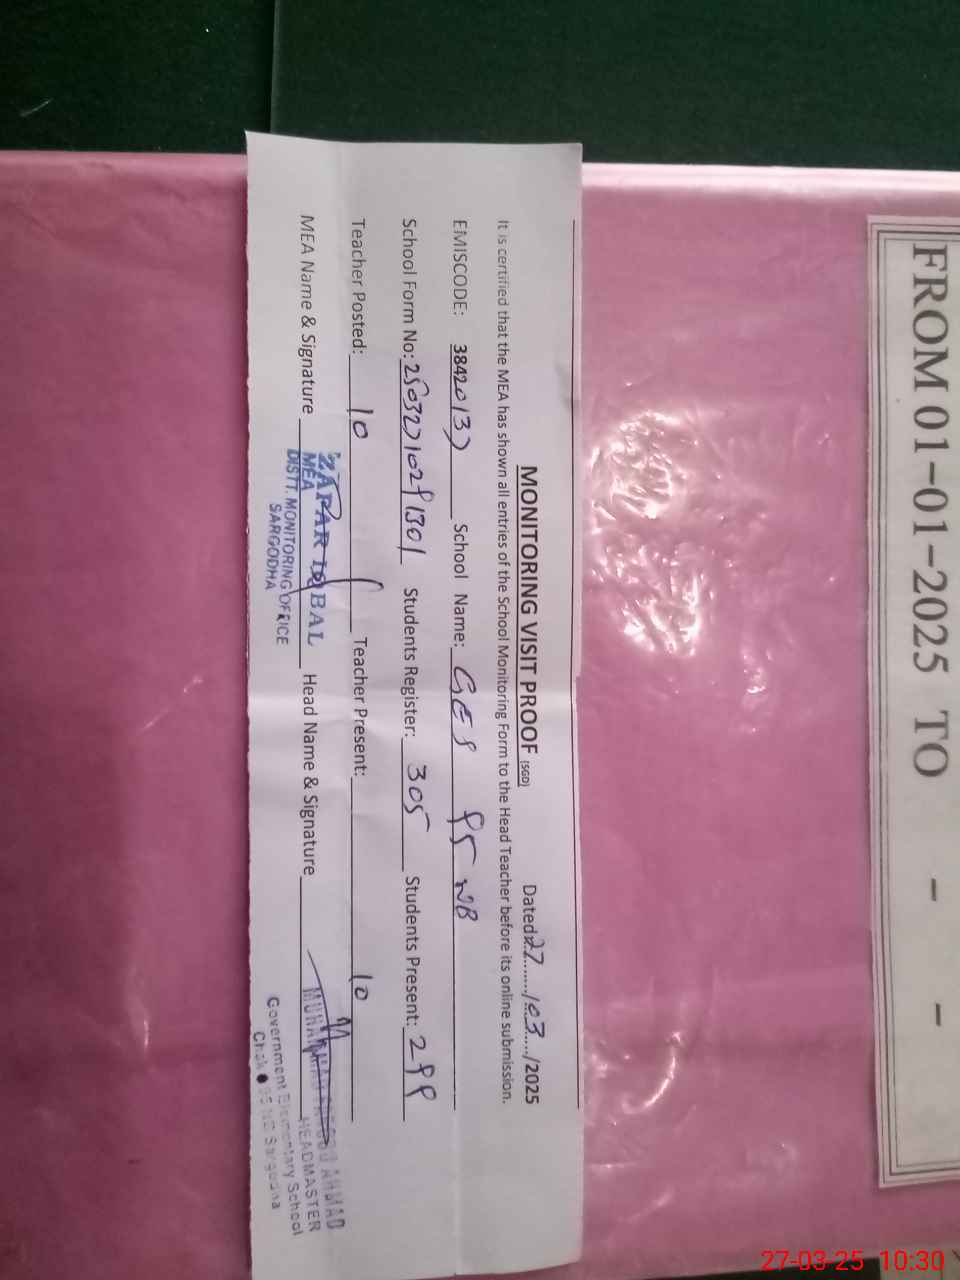 FROM 01-01-2025 TO - -
MONITORING VISIT PROOF (SGD) Dated:27....../.03..../2025
It is certified that the MEA has shown all entries of the School Monitoring Form to the Head Teacher before its online submission.
EMISCODE: 38420137 School Name: GES 95 NB
School Form No: 25032710291301 Students Register: 305 Students Present: 299
Teacher Posted: 10 Teacher Present: 10
MEA Name & Signature Head Name & Signature
ZAFAR IQBAL
MEA
DISTT. MONITORING OFFICE
SARGODHA
MUHAMMAD AHMAD
HEADMASTER
Government Elementary School
Chak 95 NB Sargodha
27-03-25 10:30